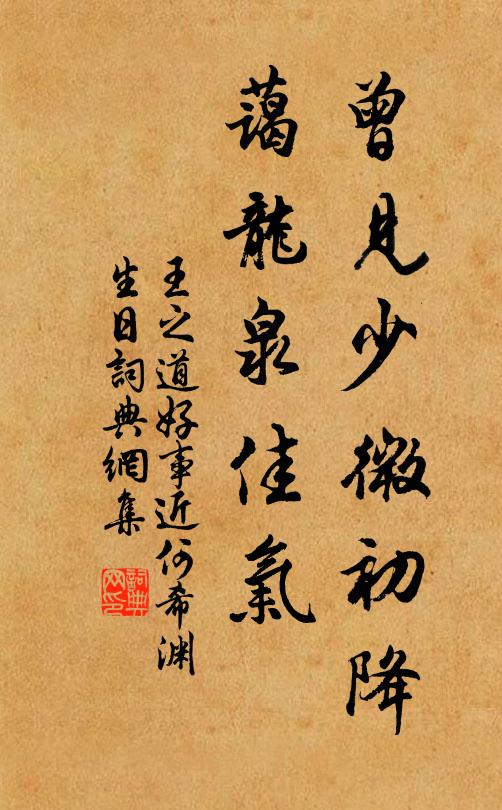 曾見少微初降
藹龍泉佳氣
王之道好事近何希淵
生日詞典網集
詞典
网印